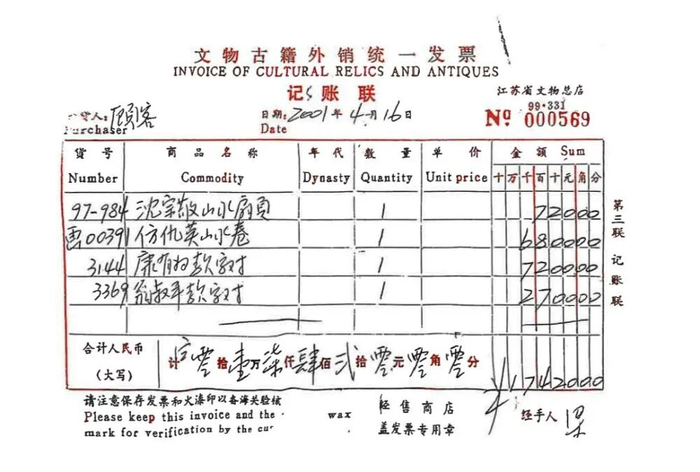 文物古籍外销统一发票
INVOICE OF CULTURAL RELICS AND ANTIQUES
记账联
江苏省文物总店
货人: 顾客
Purchaser
日期: 2001年4月16日
Date
99·331
№ 000569
货号 商品名称 年代 数量 单价 金额 Sum
Number Commodity Dynasty Quantity Unit price 十万千百十元角分
97-984 沈宗敬山水扇页 1 72000
画00391 仿仇英山水卷 1 680000
3144 康有为款字对 1 720000
3369 翁叔平款字对 1 270000
合计人民币
(大写)
计 零拾壹万柒仟肆佰贰拾零元零角零分 ¥1742000
请注意保存发票和火漆印以备海关验核
Please keep this invoice and the wax
mark for verification by the cus
经售商店
盖发票专用章
经手人 梁
第三联 记账联